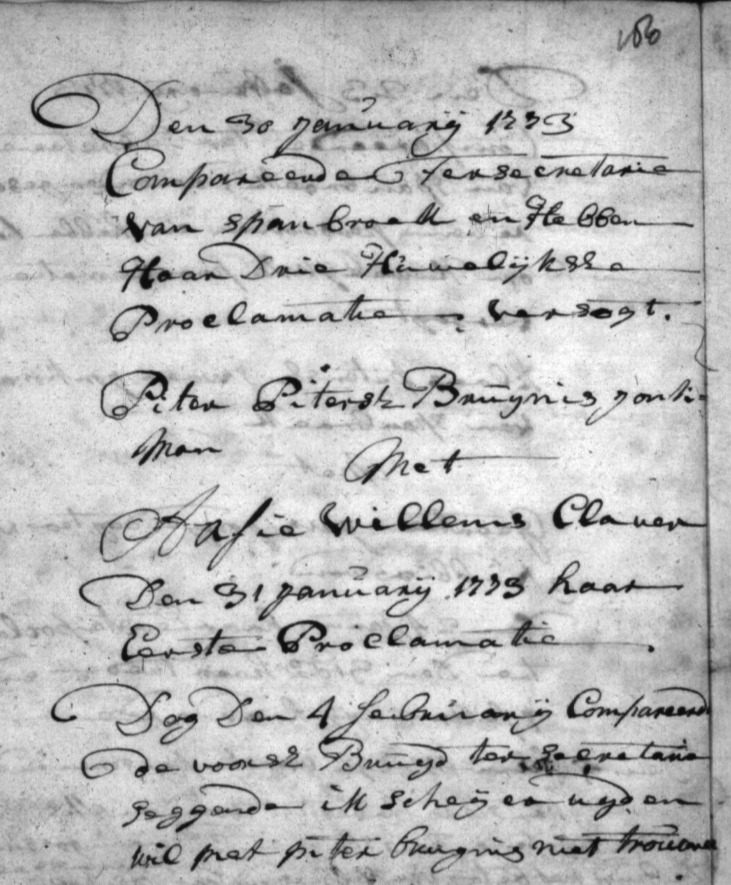 Den 30 januarij 1773
Compareerde ter secretarie
van spanbroek en Hebben
Haar Drie Huwelijkske
Proclamatie versogt.
Piter Pitersz Bruijnis jonk
Man
Met
Aafie Willems Claver
Den 31 januarij 1773 haar
Eerste Proclamatie
Dog Den 4 februarij Compareerd
de voorsz Bruijd ter secretarie
seggende ik scheij er uijt en
wil met piter bruijnis niet trouwe